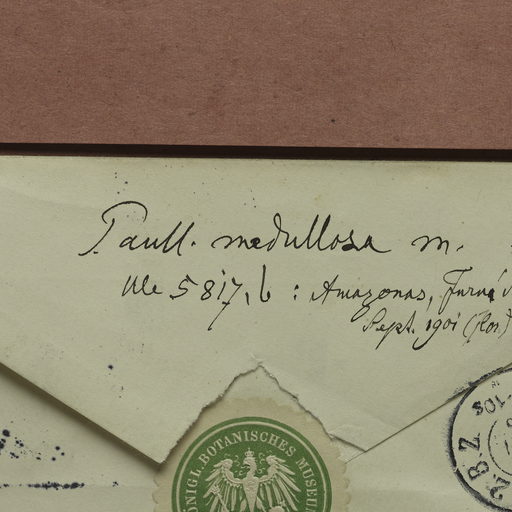 Paull. medullosa m.
Ule 5817, b : Amazonas, Juruá
Sept. 1901 (flor.)
KÖNIGL. BOTANISCHES MUSEUM
2 B Z
10s